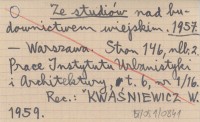 Ze studiów nad bu-
downictwem miejskim. 1957.
— Warszawa. Stron 146, nlb. 2.
Prace Instytutu Urbanistyki
i Architektury, t. 6, nr 1/16.
Rec.: KWAŚNIEWICZ W.
1959.